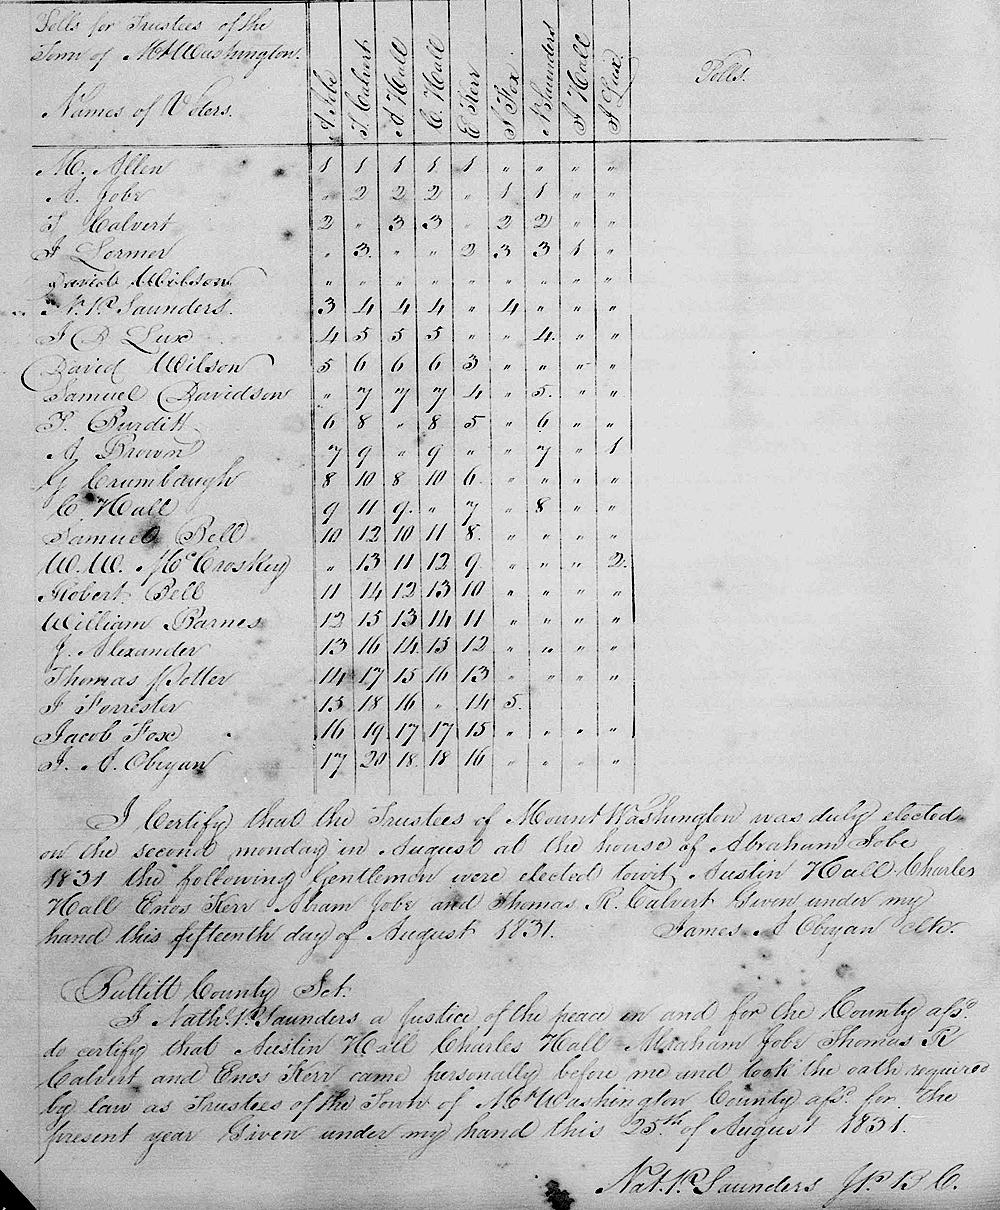 Polls for Trustees of the
Town of Mt Washington.
Names of Voters.
A Jobe T Calvert A Hall C Hall E Kerr J Fox N Saunders J Hall J Lux
Polls.
M. Allen 1 1 1 1 1 " " " "
A. Jobe " 2 2 2 " 1 1 " "
T Calvert 2 " 3 3 " 2 2 " "
J Lormer " 3. " " 2 3 3 1 "
David Wilson " " " " " " " " "
N. P. Saunders. 3 4 4 4 " 4 " " "
J B Lux 4 5 5 5 " " 4. " "
David Wilson 5 6 6 6 3 " " " "
Samuel Davidson " 7 7 7 4 " 5. " "
T. Burditt 6 8 " 8 5 " 6 " "
A Brown 7 9 " 9 " " 7 " 1
G Crumbaugh 8 10 8 10 6. " " " "
C Hall 9 11 9. " 7 " 8 " "
Samuel Bell 10 12 10 11 8. " " " "
W. W. McCroskey " 13 11 12 9 " " " 2.
Robert Bell 11 14 12 13 10 " " " "
William Barnes 12 15 13 14 11 " " " "
J. Alexander 13 16 14 15 12 " " " "
Thomas Potter 14 17 15 16 13 " " " "
J Forrester 15 18 16 " 14 5.
Jacob Fox 16 19 17 17 15 " " " "
J. A. Obryan 17 20 18. 18 16 " " " "
I Certify that the Trustees of Mount Washington was duly elected
on the second monday in August at the house of Abraham Jobe
1831 the following Gentlemen were elected towit, Austin Hall Charles
Hall Enos Kerr Abram Jobe and Thomas R. Calvert Given under my
hand this fifteenth day of August 1831. James A Obryan clk.
Bullitt County Sct.
I Nath. P. Saunders a Justice of the peace in and for the County afsd
do certify that Austin Hall Charles Hall Abraham Jobe Thomas R
Calvert and Enos Kerr came personally before me and took the oath required
by law as Trustees of the Town of Mt Washington County afsd for the
present year Given under my hand this 25th of August 1831.
Nat. P. Saunders JP. B C.